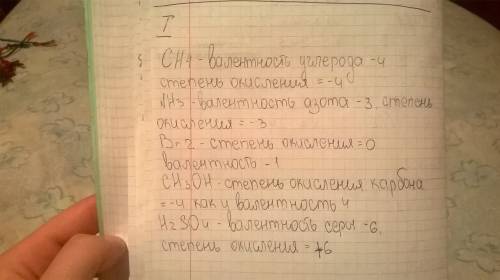 I
CH4 - валентность углерода -4
степень окисления = -4
NH3 - валентность азота -3, степень
окисления = -3
Br2 - степень окисления = 0
валентность -1
CH3OH - степень окисления карбона
= -4 как и валентность 4
H2SO4 - валентность серы -6,
степень окисления = +6